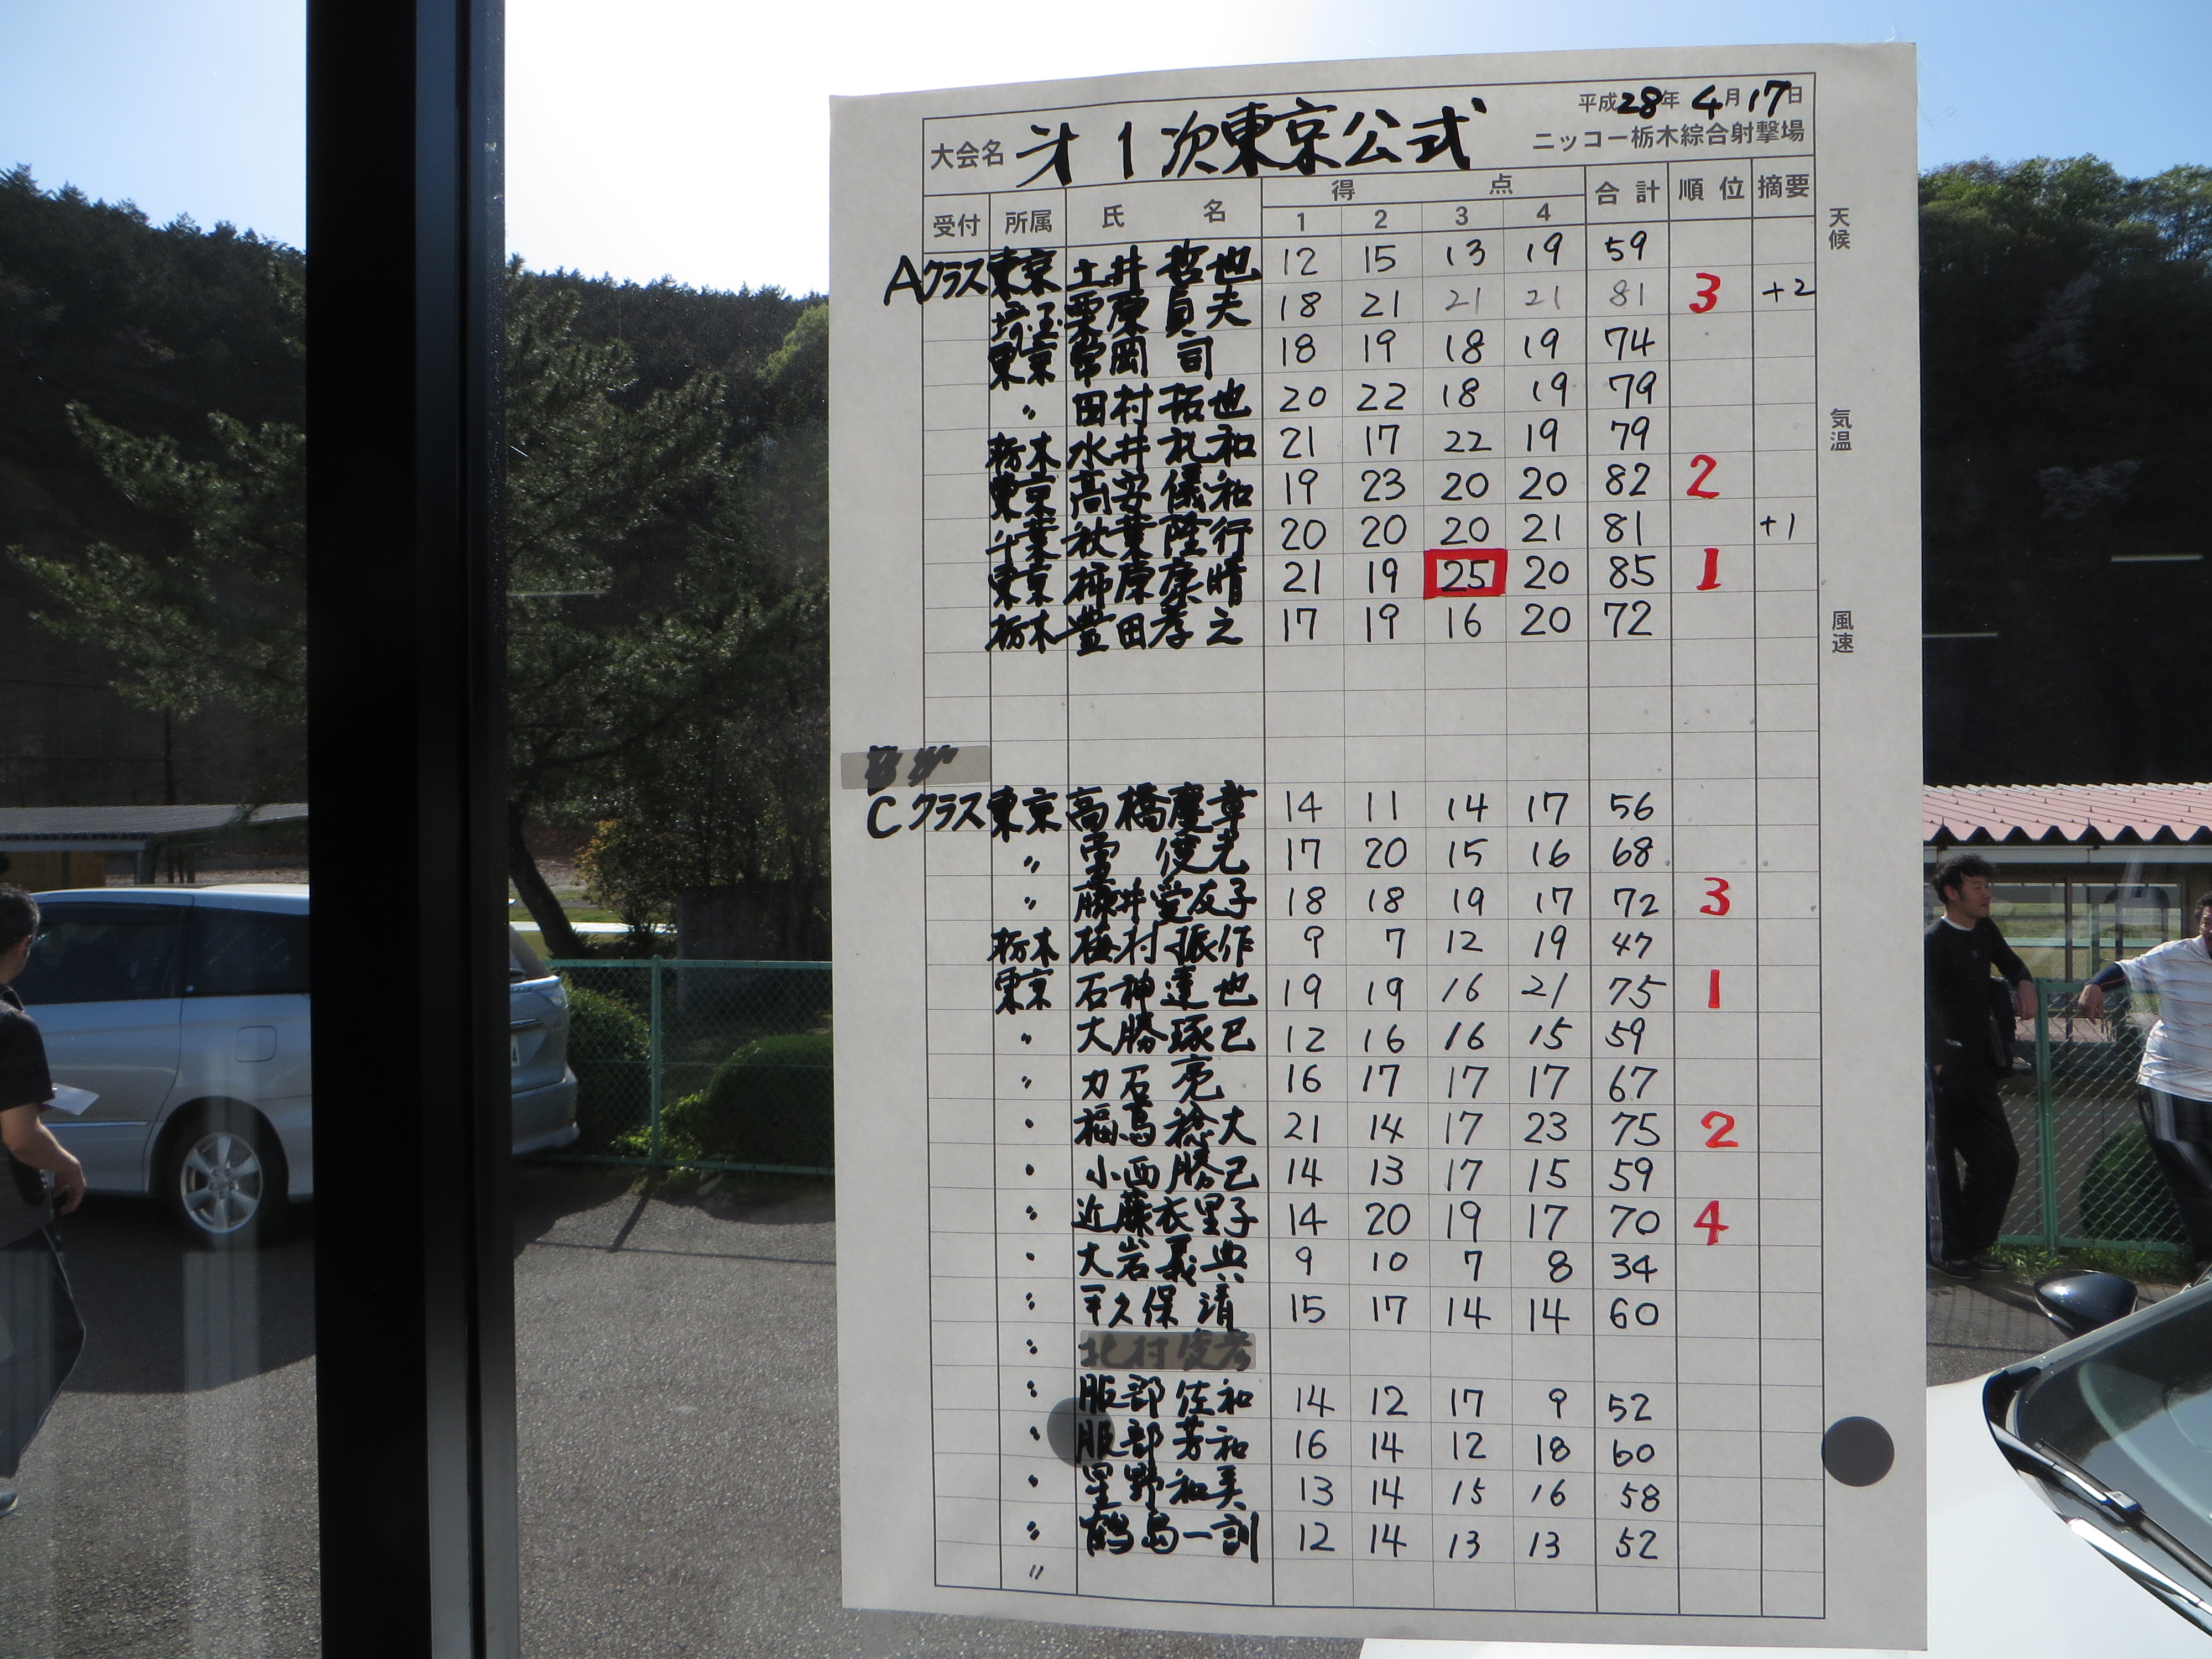 平成28年4月17日
大会名 才1次東京公式 ニッコー栃木綜合射撃場
受付 所属 氏名 得点 1 2 3 4 合計 順位 摘要
Aクラス 東京 土井哲也 12 15 13 19 59
埼玉 栗原貞夫 18 21 21 21 81 3 +2
東京 常岡司 18 19 18 19 74
〃 田村拓也 20 22 18 19 79
栃木 水井礼和 21 17 22 19 79
東京 高安儀和 19 23 20 20 82 2
千葉 秋葉隆行 20 20 20 21 81 +1
東京 柿原康晴 21 19 25 20 85 1
栃木 豊田孝之 17 19 16 20 72
Cクラス 東京 高橋慶 14 11 14 17 56
〃 俊光 17 20 15 16 68
〃 藤井愛友子 18 18 19 17 72 3
栃木 植村振作 9 7 12 19 47
東京 石神達也 19 19 16 21 75 1
〃 大勝琢巳 12 16 16 15 59
〃 力石亮 16 17 17 17 67
〃 福島 大 21 14 17 23 75 2
〃 小西勝己 14 13 17 15 59
〃 近藤衣里子 14 20 19 17 70 4
〃 大岩義典 9 10 7 8 34
〃 久保清 15 17 14 14 60
〃 北村俊
〃 服部佐和 14 12 17 9 52
〃 服部芳和 16 14 12 18 60
〃 星野和美 13 14 15 16 58
〃 鶴島一訓 12 14 13 13 52
〃
天候
気温
風速